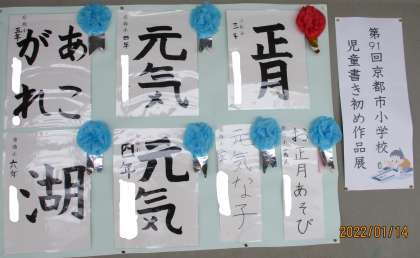 第91回京都市小学校
児童書き初め作品展
正月
元気
あこ
がれ
お正月あそび
元気な子
元気
四年
湖
六年
2022/01/14